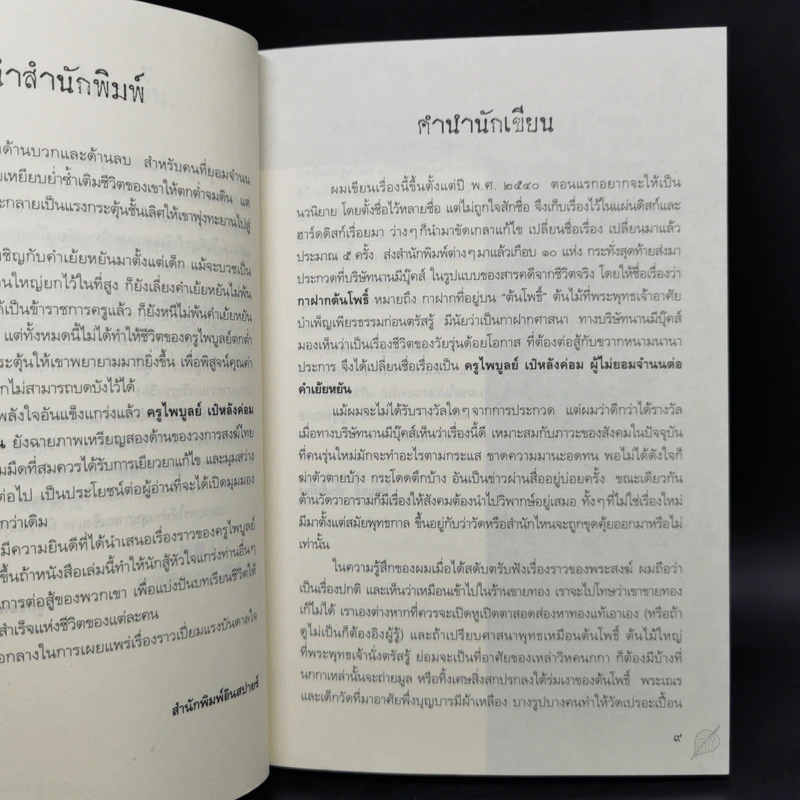 นำสำนักพิมพ์
ด้านบวกและด้านลบ สำหรับคนที่ยอมจำนน
เหยียบย่ำซ้ำเติมชีวิตของเขาให้ตกต่ำจมดิน แต่
กลายเป็นแรงกระตุ้นชั้นเลิศให้เขาพุ่งทะยานไปสู่
ชิญกับคำเย้ยหยันมาตั้งแต่เด็ก แม้จะบวชเป็น
นใหญ่ยกไว้ในที่สูง ก็ยังเลี่ยงคำเย้ยหยันไม่พ้น
ด้เป็นข้าราชการครูแล้ว ก็ยังหนีไม่พ้นคำเย้ยหยัน
แต่ทั้งหมดนี้ไม่ได้ทำให้ชีวิตของครูไพบูลย์ตกต่ำ
ระตุ้นให้เขาพยายามมากยิ่งขึ้น เพื่อพิสูจน์คุณค่า
กไม่สามารถบดบังไว้ได้
พลังใจอันแข็งแกร่งแล้ว ครูไพบูลย์ เป๋หลังค่อม
น ยังฉายภาพเหรียญสองด้านของวงการสงฆ์ไทย
มมืดที่สมควรได้รับการเยียวยาแก้ไข และมุมสว่าง
ต่อไป เป็นประโยชน์ต่อผู้อ่านที่จะได้เปิดมุมมอง
กว่าเดิม
มีความยินดีที่ได้นำเสนอเรื่องราวของครูไพบูลย์
ขึ้นถ้าหนังสือเล่มนี้ทำให้นักสู้หัวใจแกร่งท่านอื่นๆ
การต่อสู้ของพวกเขา เพื่อแบ่งปันบทเรียนชีวิตให้
สำเร็จแห่งชีวิตของแต่ละคน
อกลางในการเผยแพร่เรื่องราวเปี่ยมแรงบันดาลใจ
สำนักพิมพ์อินสปายร์
คำนำนักเขียน
ผมเขียนเรื่องนี้ขึ้นตั้งแต่ปี พ.ศ. ๒๕๔๐ ตอนแรกอยากจะให้เป็น
นวนิยาย โดยตั้งชื่อไว้หลายชื่อ แต่ไม่ถูกใจสักชื่อ จึงเก็บเรื่องไว้ในแผ่นดิสก์และ
ฮาร์ดดิสก์เรื่อยมา ว่างๆ ก็นำมาขัดเกลาแก้ไข เปลี่ยนชื่อเรื่อง เปลี่ยนมาแล้ว
ประมาณ ๕ ครั้ง ส่งสำนักพิมพ์ต่างๆ มาแล้วเกือบ ๑๐ แห่ง กระทั่งสุดท้ายส่งมา
ประกวดที่บริษัทนานมีบุ๊คส์ ในรูปแบบของสารคดีจากชีวิตจริง โดยให้ชื่อเรื่องว่า
กาฝากต้นโพธิ์ หมายถึง กาฝากที่อยู่บน “ต้นโพธิ์” ต้นไม้ที่พระพุทธเจ้าอาศัย
บำเพ็ญเพียรธรรมก่อนตรัสรู้ มีนัยว่าเป็นกาฝากศาสนา ทางบริษัทนานมีบุ๊คส์
มองเห็นว่าเป็นเรื่องชีวิตของวัยรุ่นด้อยโอกาส ที่ต้องต่อสู้กับขวากหนามนานา
ประการ จึงได้เปลี่ยนชื่อเรื่องเป็น ครูไพบูลย์ เป๋หลังค่อม ผู้ไม่ยอมจำนนต่อ
คำเย้ยหยัน
แม้ผมจะไม่ได้รับรางวัลใดๆ จากการประกวด แต่ผมว่าดีกว่าได้รางวัล
เมื่อทางบริษัทนานมีบุ๊คส์เห็นว่าเรื่องนี้ดี เหมาะสมกับภาวะของสังคมในปัจจุบัน
ที่คนรุ่นใหม่มักจะทำอะไรตามกระแส ขาดความมานะอดทน พอไม่ได้ดังใจก็
ฆ่าตัวตายบ้าง กระโดดตึกบ้าง อันเป็นข่าวผ่านสื่ออยู่บ่อยครั้ง ขณะเดียวกัน
ด้านวัดวาอารามก็มีเรื่องให้สังคมต้องนำไปวิพากษ์อยู่เสมอ ทั้งๆ ที่ไม่ใช่เรื่องใหม่
มีมาตั้งแต่สมัยพุทธกาล ขึ้นอยู่กับว่าวัดหรือสำนักไหนจะถูกขุดคุ้ยออกมาหรือไม่
เท่านั้น
ในความรู้สึกของผมเมื่อได้สดับตรับฟังเรื่องราวของพระสงฆ์ ผมถือว่า
เป็นเรื่องปกติ และเห็นว่าเหมือนเข้าไปในร้านขายทอง เราจะไปโทษว่าเขาขายทอง
เก๊ไม่ได้ เราเองต่างหากที่ควรจะเปิดหูเปิดตาสอดส่องหาทองแท้เอาเอง (หรือถ้า
ดูไม่เป็นก็ต้องอิงผู้รู้) และถ้าเปรียบศาสนาพุทธเหมือนต้นโพธิ์ ต้นไม้ใหญ่
ที่พระพุทธเจ้านั่งตรัสรู้ ย่อมจะเป็นที่อาศัยของเหล่าวิหคนกกา ก็ต้องมีบ้างที่
นกกาเหล่านั้นจะถ่ายมูล หรือทิ้งเศษสิ่งสกปรกลงใต้ร่มเงาของต้นโพธิ์ พระเณร
และเด็กวัดที่มาอาศัยพึ่งบุญบารมีผ้าเหลือง บางรูปบางคนทำให้วัดเปรอะเปื้อน
๙